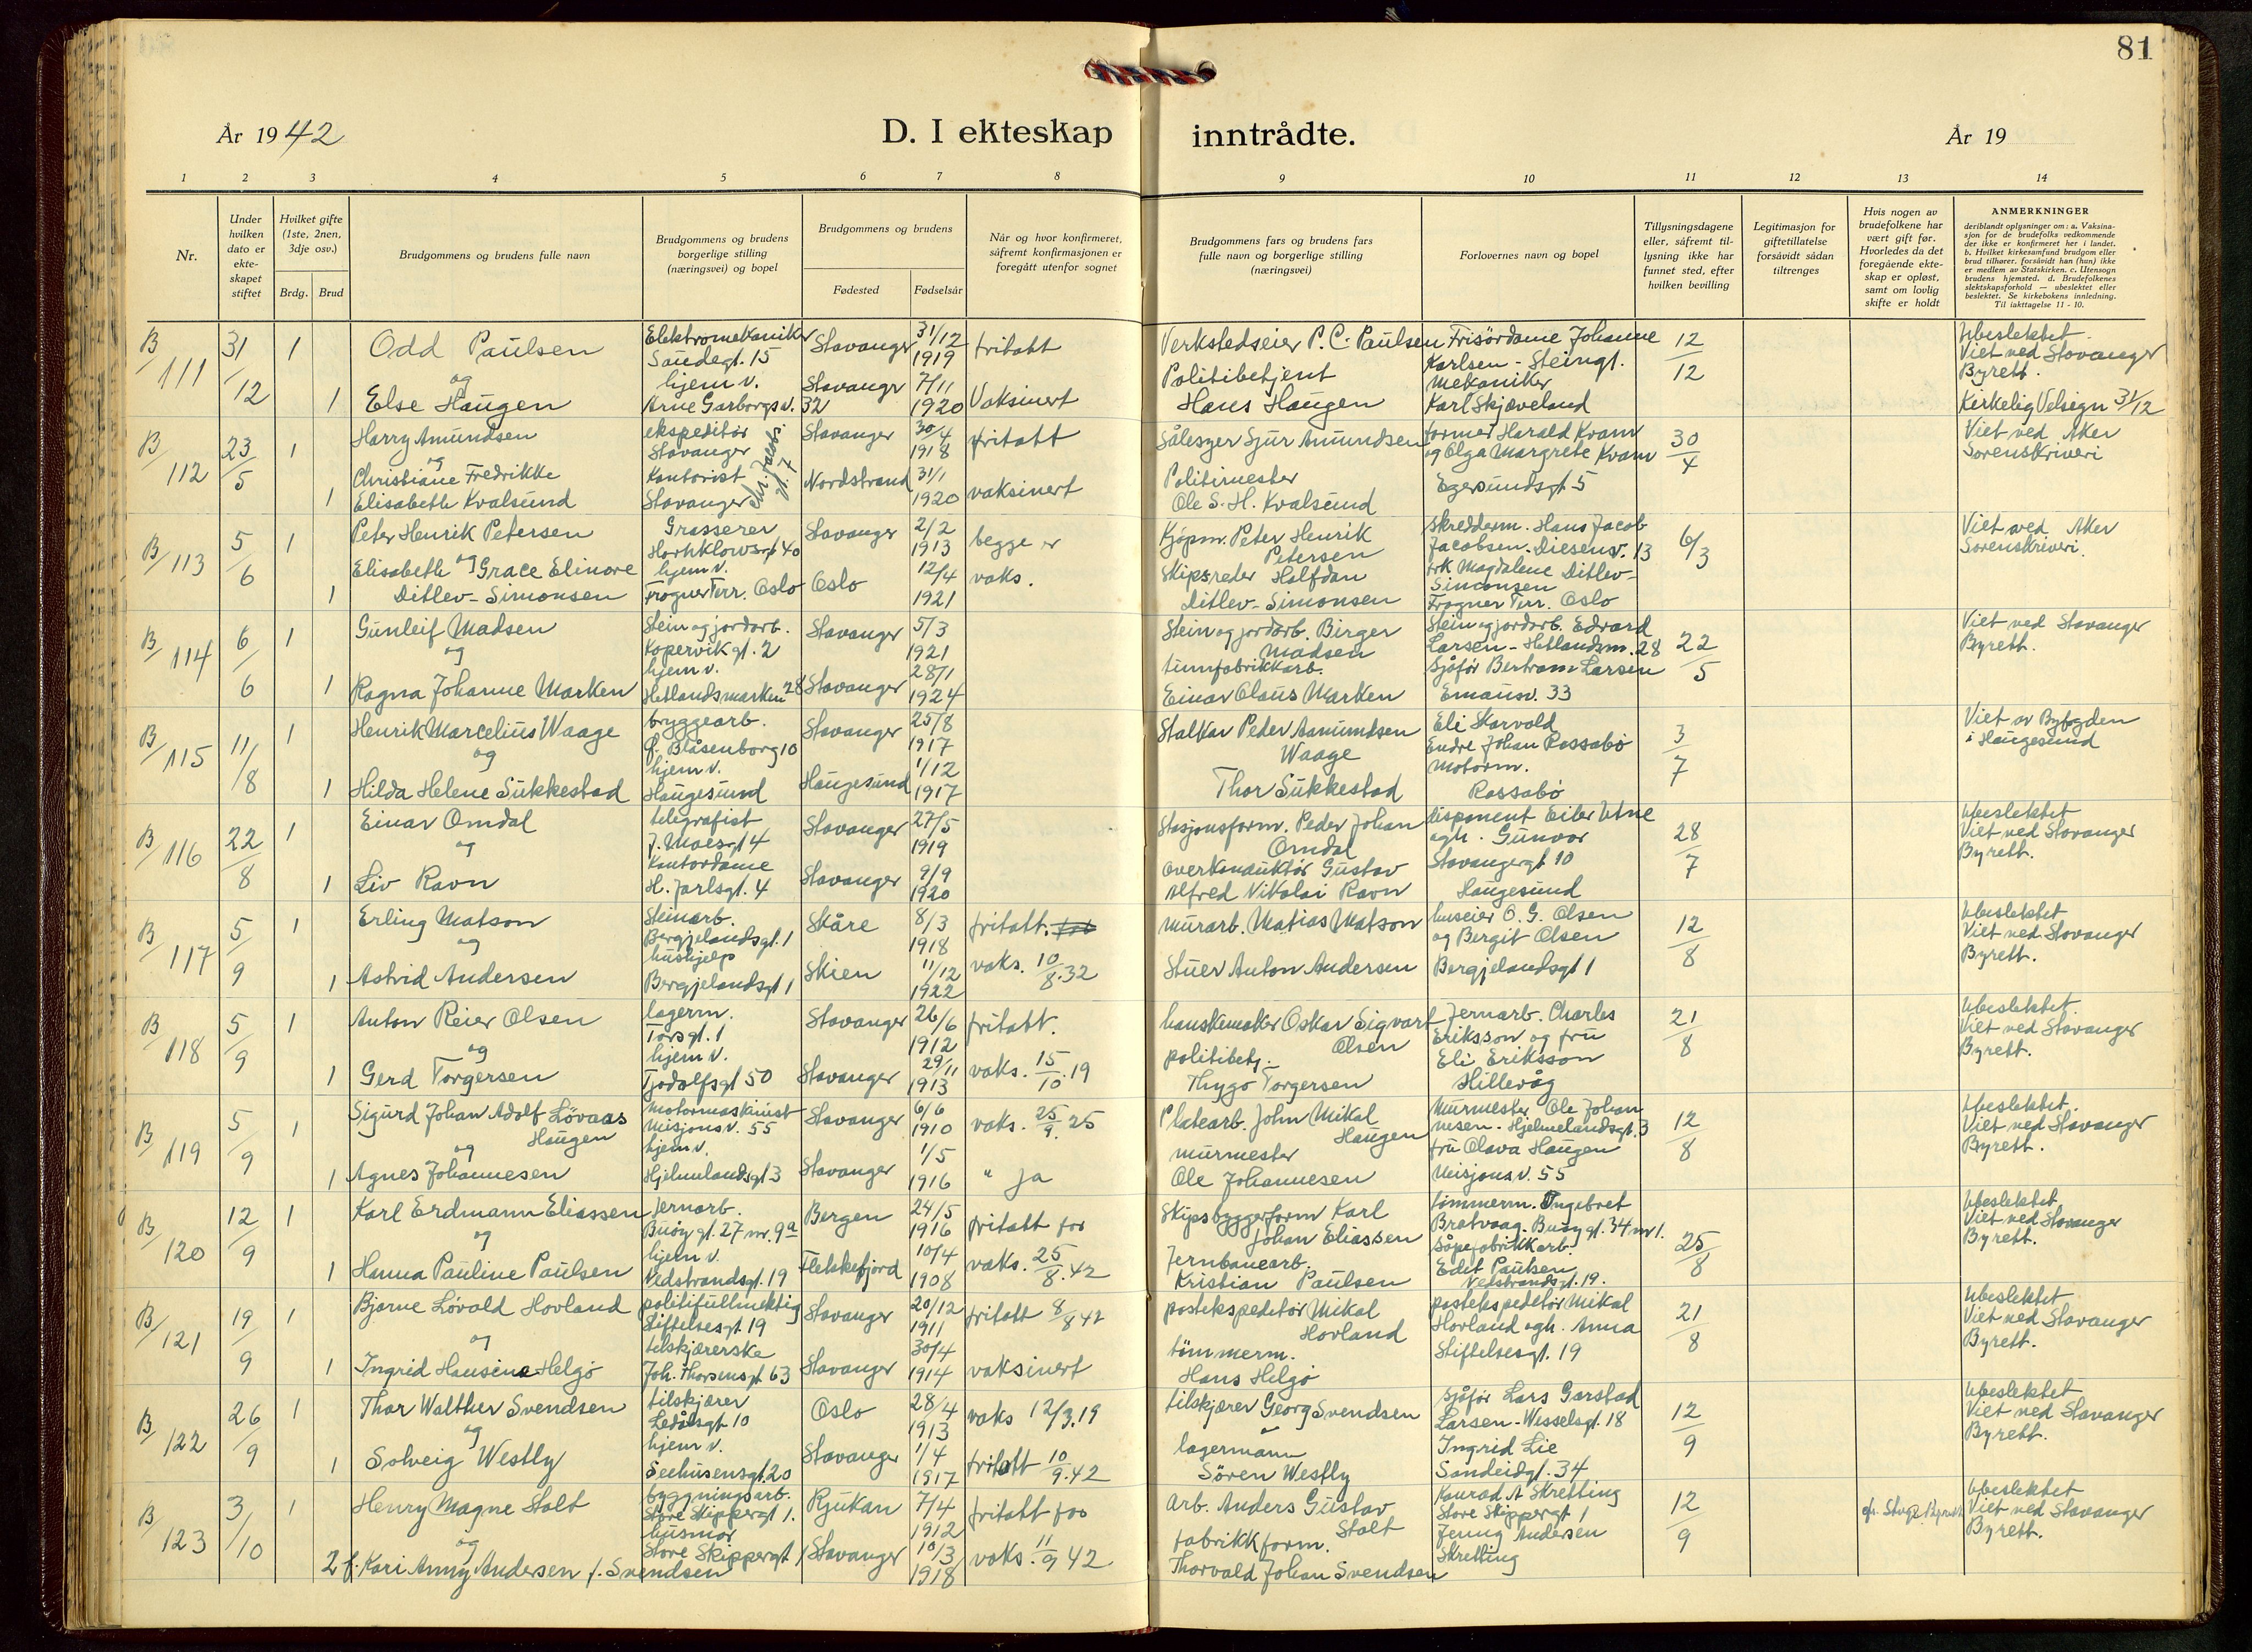 81
År 1942
D. I ekteskap inntrådte.
År 19
1 2 3 4 5 6 7 8 9 10 11 12 13 14
Nr.
Under hvilken dato er ekte-skapet stiftet
Hvilket gifte (1ste, 2nen, 3dje osv.)
Brdg. Brud
Brudgommens og brudens fulle navn
Brudgommens og brudens borgerlige stilling (næringsvei) og bopel
Brudgommens og brudens
Fødested Fødselsår
Når og hvor konfirmeret, såfremt konfirmasjonen er foregått utenfor sognet
Brudgommens fars og brudens fars fulle navn og borgerlige stilling (næringsvei)
Forlovernes navn og bopel
Tillysningsdagene eller, såfremt til-lysning ikke har funnet sted, efter hvilken bevilling
Legitimasjon for giftetillatelse forsåvidt sådan tiltrenges
Hvis nogen av brudefolkene har vært gift før. Hvorledes da det foregående ekte-skap er opløst, samt om lovlig skifte er holdt
ANMERKNINGER
deriblandt oplysninger om: a. Vaksina-sjon for de brudefolks vedkommende der ikke er konfirmeret her i landet. b. Hvilket kirkesamfund brudgom eller brud tilhører, forsåvidt han (hun) ikke er medlem av Statskirken. c. Utensogn brudens hjemsted. d. Brudefolkenes slektskapsforhold — ubeslektet eller beslektet. Se kirkebokens innledning. Til iakttagelse 11 - 10.
B/111 31/12 1 Odd Paulsen Elektromekaniker Saudegt. 15 Stavanger 31/12 1919 fritatt Verkstedseier P. C. Paulsen Frisørdame Johanne Karlsen - Steingt. 12/12 Ubeslektet. Viet ved Stavanger Byrett.
og
1 Else Haugen hjem v. Arne Garborgs v. 32 Stavanger 7/11 1920 Vaksinert Politibetjent Hans Haugen Mekaniker Karl Skjæveland Kirkelig Velsign 31/12
B/112 23/5 1 Harry Amundsen ekspeditør Stavanger Stavanger 30/4 1918 fritatt Sjur Amundsen former Harald Kvam og Olga Margrete Kvam 30/4 Viet ved Aker Sorenskriveri
og
1 Christiane Fredrikke Elisabeth Kvalsund Kontorist Stavanger Nordstrand 31/1 1920 vaksinert Politimester Ole S. H. Kvalsund Egersundsgt 5
B/113 5/6 1 Peter Henrik Petersen Grosserer 40 Stavanger 2/2 1913 begge er vaks. Kjøpm. Peter Henrik Petersen Skredderm. Hans Jacob Jacobsen. Diesensv. 13 6/3 Viet ved Aker Sorenskriveri.
og
1 Elisabeth Grace Elinore Ditlev-Simonsen hjem v. Frogner Terr. Oslo Oslo 12/4 1921 Skipsreder Halfdan Ditlev-Simonsen frk Magdalene Ditlev-Simonsen Frogner Terr. Oslo
B/114 6/6 1 Gunleif Madsen Stein og jordarb. Kopervikgt. 2 Stavanger 5/3 1921 Stein og jordarb. Birger Madsen Stein og jordarb. Edvard Larsen - Hetlandsm. 28 22/5 Viet ved Stavanger Byrett.
og
1 Ragna Johanne Marken hjem v. Hetlandsmarken 28 Stavanger 28/1 1924 tinnfabrikkarb. Einar Claus Marken Sjåfør Bertram Larsen Emausv. 33
B/115 11/8 1 Henrik Marcelius Waage bryggearb. Blåsenborg 10 Stavanger 25/8 1917 Peder Aamundsen Waage Eli Skarvold Endre Johan Rossabø 3/7 Viet av Byfogden i Haugesund
og
1 Hilda Helene Sukkestad hjem v. Haugesund Haugesund 1/12 1917 Thor Sukkestad motorm. Rossabø
B/116 22/8 1 Einar Omdal telegrafist 4 Stavanger 27/5 1919 Stasjonsform. Peder Johan Omdal disponent Eiler Utne ogh. Gunvor 28/7 Ubeslektet Viet ved Stavanger Byrett.
og
1 Liv Ravn Kontordame H. Jarlsgt. 4 Stavanger 9/9 1920 overkonduktør Gustav Alfred Nikolai Ravn Stavangergt 10 Haugesund
B/117 5/9 1 Erling Matson Steinarb. Bergjelandsgt. 1 Skåre 8/3 1918 fritatt. murarb. Matias Matson huseier O. G. Olsen og Bergit Olsen 12/8 Ubeslektet Viet ved Stavanger Byrett.
og
1 Astrid Andersen hushjelp Bergjelandsgt 1 Skien 11/12 1922 vaks. 10/8.32 Stuer Anton Andersen Bergjelandsgt 1
B/118 5/9 1 Anton Reier Olsen lagerm. Torsgt. 1 Stavanger 26/6 1912 fritatt. hanskemaker Oskar Sigvart Olsen Jernarb. Charles Eriksson og fru Eli Eriksson Hillevåg 21/8 Ubeslektet. Viet ved Stavanger Byrett.
og
1 Gerd Torgersen hjem v. Tjodolfsgt 50 Stavanger 29/11 1913 vaks. 15/10.19 politibetj. Thygo Torgersen
B/119 5/9 1 Sigurd Johan Adolf Løvaas Haugen Motormaskinist Misjonsv. 55 Stavanger 6/6 1910 vaks. 25/9.25 Platearb. John Mikal Haugen Murmester Ole Johannesen - Hjelmelandsgt. 3 12/8 Ubeslektet. Viet ved Stavanger Byrett.
og
1 Agnes Johannesen hjem v. Hjelmelandsgt 3 Stavanger 1/5 1916 " ja murmester Ole Johannesen fru Olava Haugen Misjonsv. 55
B/120 12/9 1 Karl Erdmann Eliassen Jernarb. Buøygt. 27 nr. 9a Bergen 24/5 1916 fritatt for Skipsbyggerform Karl Johan Eliassen tømmerm. Ingebret Bratvaag. Buøygt. 34 nr 1. 25/8 Ubeslektet. Viet ved Stavanger Byrett.
og
1 Hanna Pauline Paulsen hjem v. Vedstrandsgt. 19 Flekkefjord 10/4 1908 vaks. 25/8.42 Jernbanearb. Kristian Paulsen Såpefabrikkarb. Edit Paulsen Vedstrandsgt. 19.
B/121 19/9 1 Bjarne Løvold Hovland politifullmektig Stiftelsesgt 19 Stavanger 20/12 1911 fritatt 8/8 42 postekspeditør Mikal Hovland postekspeditør Mikal Hovland ogh. Anna Stiftelsesgt. 19 21/8 Ubeslektet Viet ved Stavanger Byrett.
og
1 Ingrid Hansine Helgø tilskjærerske Joh. Thorsensgt 63 Stavanger 30/4 1914 vaksinert tømmerm. Hans Helgø
B/122 26/9 1 Thor Walther Svendsen tilskjærer Ledålsgt 10 Oslo 28/4 1913 vaks 12/3.19 tilskjærer Georg Svendsen sjåfør Lars Garstad Larsen - Wesselsgt. 18 12/9 Ubeslektet Viet ved Stavanger Byrett.
og
1 Solveig Westly hjem v. Seehusensgt. 20 Stavanger 1/4 1917 fritatt 10/9.42 lagermann Søren Westly Ingrid Lie Sandeidgt. 34
B/123 3/10 1 Henry Magne Stolt byggningsarb. Store Skippergt 1. Rjukan 7/4 1912 fritatt for arb. Anders Gustav Stolt Konrad A Skretting Store Skippergt 1 12/9 Ubeslektet Viet ved Stavanger Byrett.
og
2 f. Kari Anny Andersen f. Svendsen husmor Store Skippergt 1 Stavanger 10/3 1918 vaks. 11/9 42 fabrikkform. Thorvald Johan Svendsen Jenny Andersen Skretting